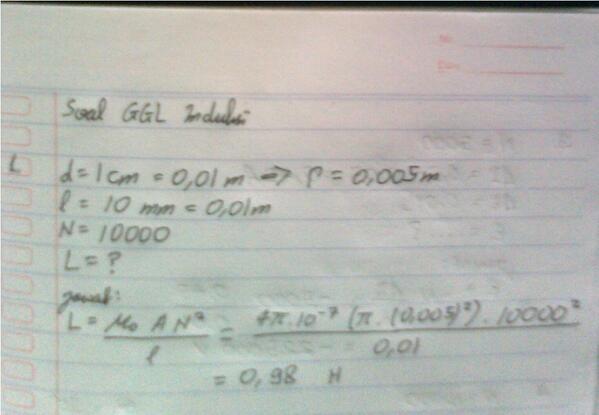 Soal GGL Induksi
1. d = 1 cm = 0,01 m => r = 0,005 m
l = 10 mm = 0,01 m
N = 10000
L = ?
jawab:
L = μ₀ A N² / l = 4π.10⁻⁷ (π.(0,005)²).10000² / 0,01
= 0,98 H